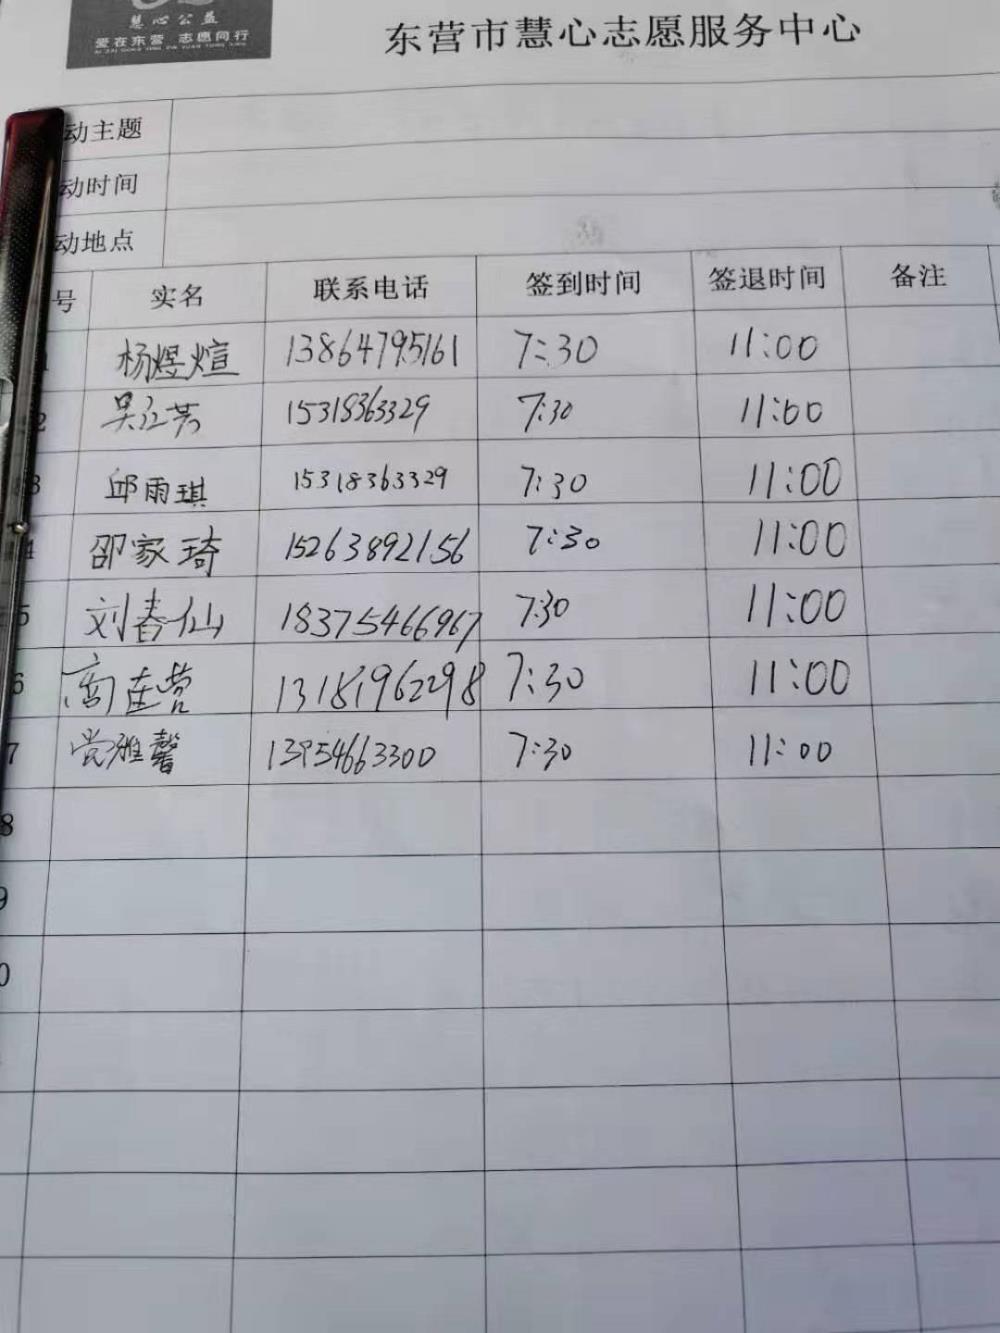 慧心公益
爱在东营 志愿同行
东营市慧心志愿服务中心
动主题
动时间
动地点
号 实名 联系电话 签到时间 签退时间 备注
1 杨煜煊 13864795161 7:30 11:00
2 吴江芳 15318363329 7:30 11:00
3 邱雨琪 15318363329 7:30 11:00
4 邵家琦 15263892156 7:30 11:00
5 刘春仙 18375466967 7:30 11:00
6 高连营 13181962298 7:30 11:00
7 党雅馨 13954663300 7:30 11:00
8
9
0